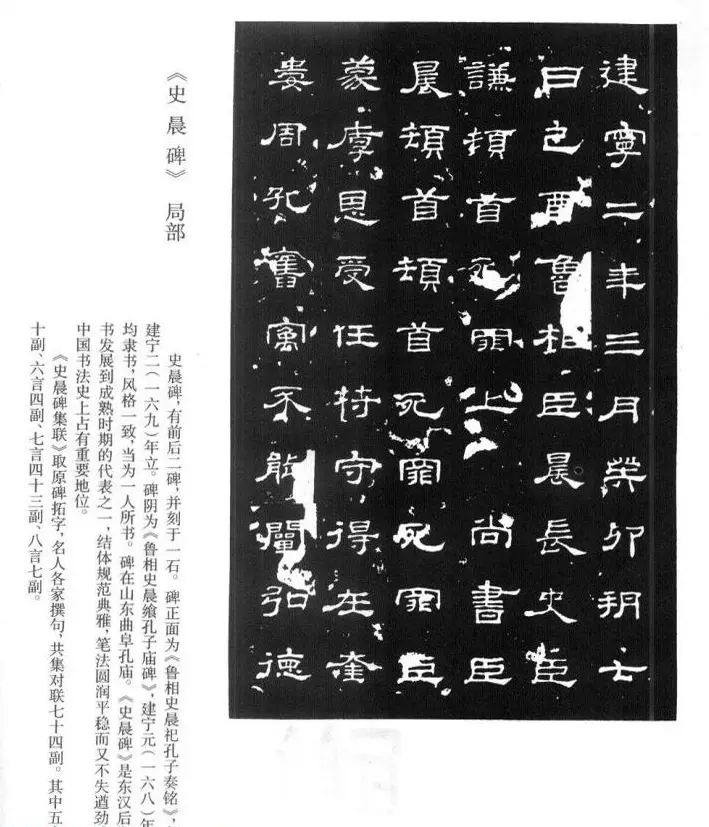 建寧二年三月癸卯朔七
日己酉魯相臣晨長史臣
謙頓首死罪上 尚書臣
晨頓首頓首死罪死罪臣
蒙厚恩受任符守得在奎
婁周孔舊寓不能闡弘德
《史晨碑》 局部
史晨碑,有前后二碑,并刻于一石。碑正面为《鲁相史晨祀孔子奏铭》,
建宁二(一六九)年立。碑阴为《鲁相史晨飨孔子庙碑》,建宁元(一六八)年
均隶书,风格一致,当为一人所书。碑在山东曲阜孔庙。《史晨碑》是东汉后
书发展到成熟时期的代表之一,结体规范典雅,笔法圆润平稳而又不失遒劲
中国书法史上占有重要地位。
《史晨碑集联》取原碑拓字,名人各家撰句,共集对联七十四副。其中五
十副、六言四副、七言四十三副、八言七副。